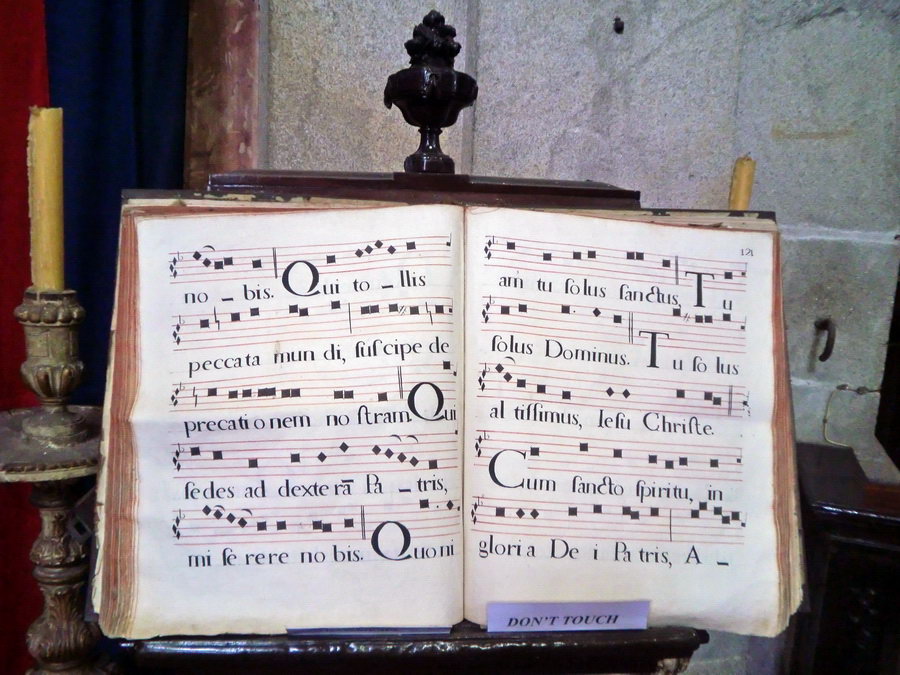 no _ bis. Qui to _ llis
peccata mun di, ſuſcipe de
precati onem no ſtram. Qui
ſedes ad dexte rā Pa _ tris,
mi ſe rere no bis. Quoni
121
am tu ſolus ſanctus, Tu
ſolus Dominus. Tu ſo lus
al tiſſimus, Ieſu Chriſte.
Cum ſancto ſpiritu, in
gloria De i Pa tris, A _
DON'T TOUCH